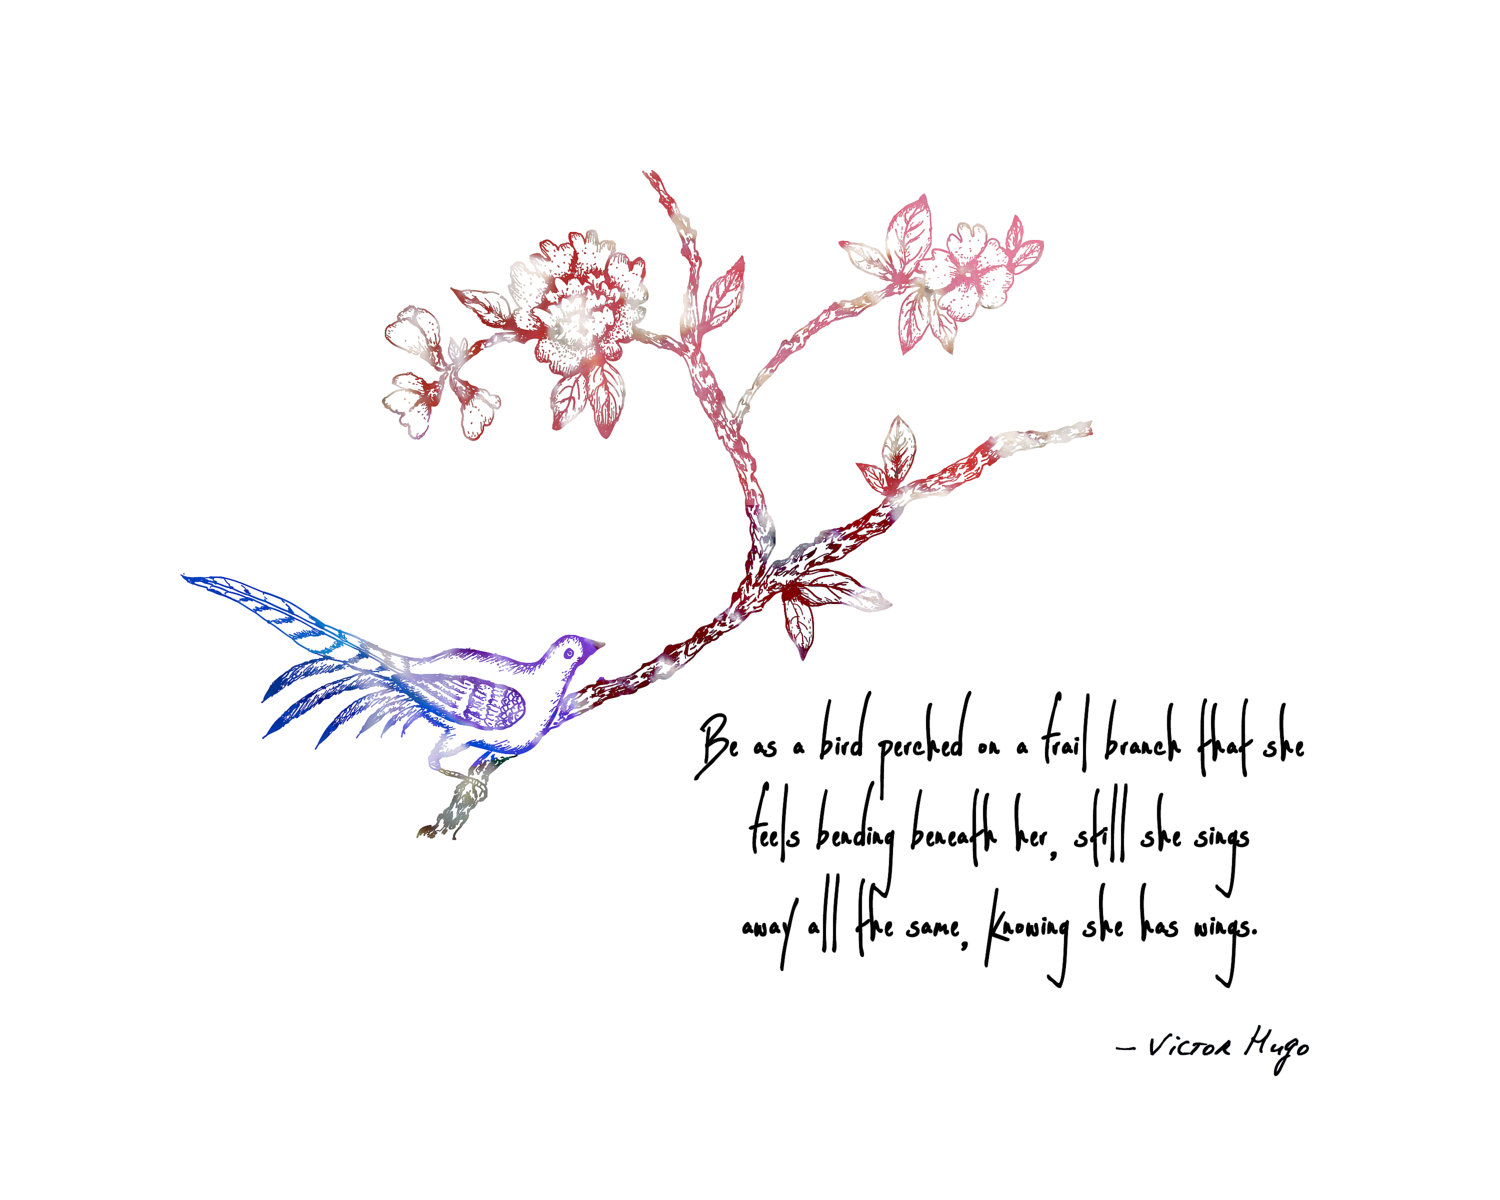 Be as a bird perched on a frail branch that she
feels bending beneath her, still she sings
away all the same, knowing she has wings.
– Victor Hugo